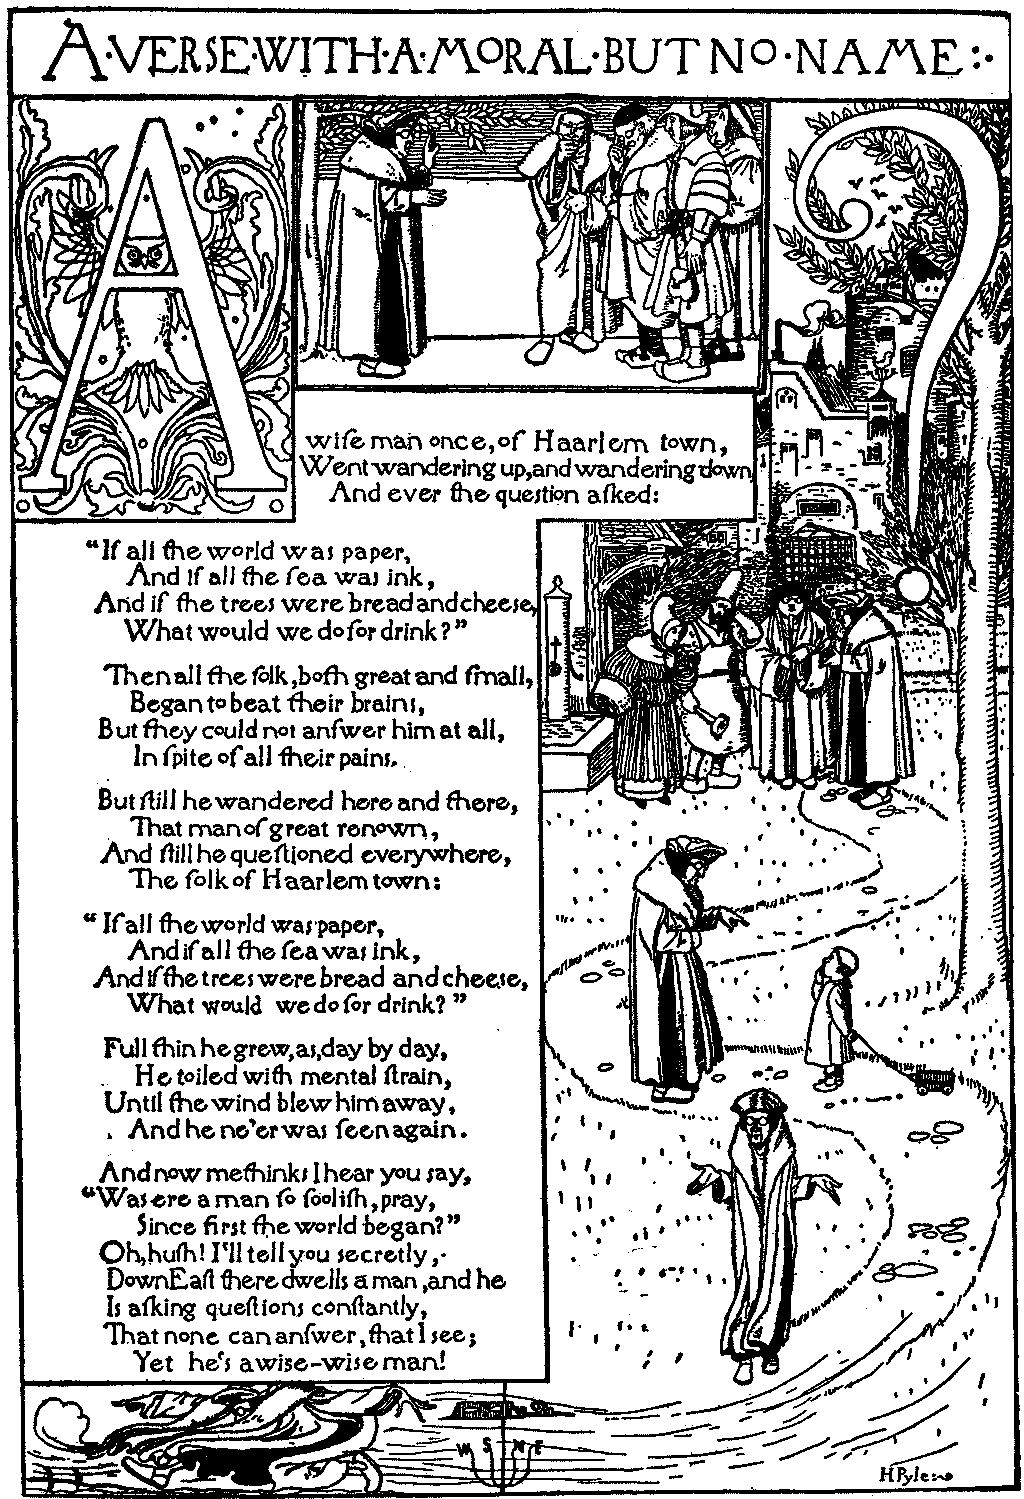 A·VERSE·WITH·A·MORAL·BUT NO·NAME:·
A
wiſe man once, of Haarlem town,
Went wandering up, and wandering down,
And ever the queſtion aſked:
“If all the world was paper,
And if all the ſea was ink,
And if the trees were bread and cheese,
What would we do for drink?”
Then all the folk, both great and ſmall,
Began to beat their brains,
But they could not anſwer him at all,
In ſpite of all their pains.
But ſtill he wandered here and there,
That man of great renown,
And ſtill he queſtioned everywhere,
The folk of Haarlem town:
“If all the world was paper,
And if all the ſea was ink,
And if the trees were bread and cheese,
What would we do for drink?”
Full thin he grew, as, day by day,
He toiled with mental ſtrain,
Until the wind blew him away,
And he ne'er was ſeen again.
And now methinks I hear you say,
“Was ere a man ſo fooliſh, pray,
Since first the world began?”
Oh, huſh! I'll tell you secretly,
Down Eaſt there dwells a man, and he
Is aſking queſtions conſtantly,
That none can anſwer, that I see;
Yet he's a wise-wise man!
W S N E
H Pyle